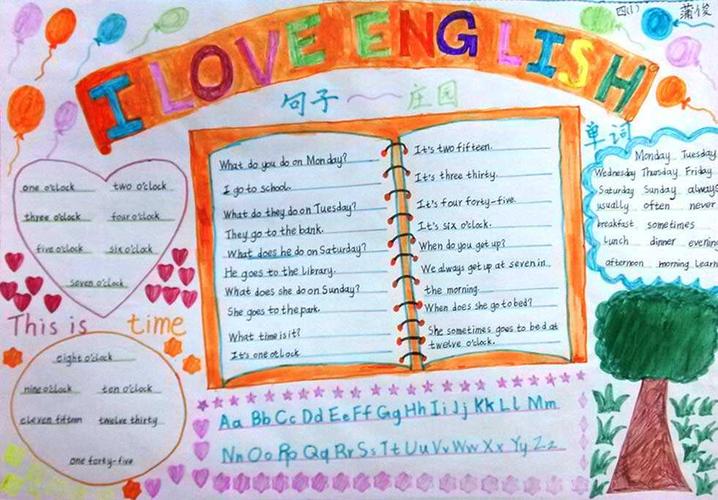 四(1) 蒲俊
I LOVE ENGLISH
句子~庄园
单词
What do you do on Monday?
I go to school.
What do they do on Tuesday?
They go to the bank.
What does he do on Saturday?
He goes to the library.
What does she do on Sunday?
She goes to the park.
What time is it?
It's one o'clock
It's two fifteen.
It's three thirty.
It's four forty-five.
It's six o'clock.
When do you get up?
We always get up at seven in
the morning.
When does she go to bed?
She sometimes goes to bed at
twelve o'clock.
Monday Tuesday
Wednesday Thursday Friday
Saturday Sunday always
usually often never
breakfast sometimes
lunch dinner evening
afternoon morning Learn
one o'clock two o'clock
three o'clock four o'clock
five o'clock six o'clock
seven o'clock
This is time
eight o'clock
nine o'clock ten o'clock
eleven fifteen twelve thirty
one forty-five
Aa Bb Cc Dd Ee Ff Gg Hh Ii Jj Kk Ll Mm
Nn Oo Pp Qq Rr Ss Tt Uu Vv Ww Xx Yy Zz